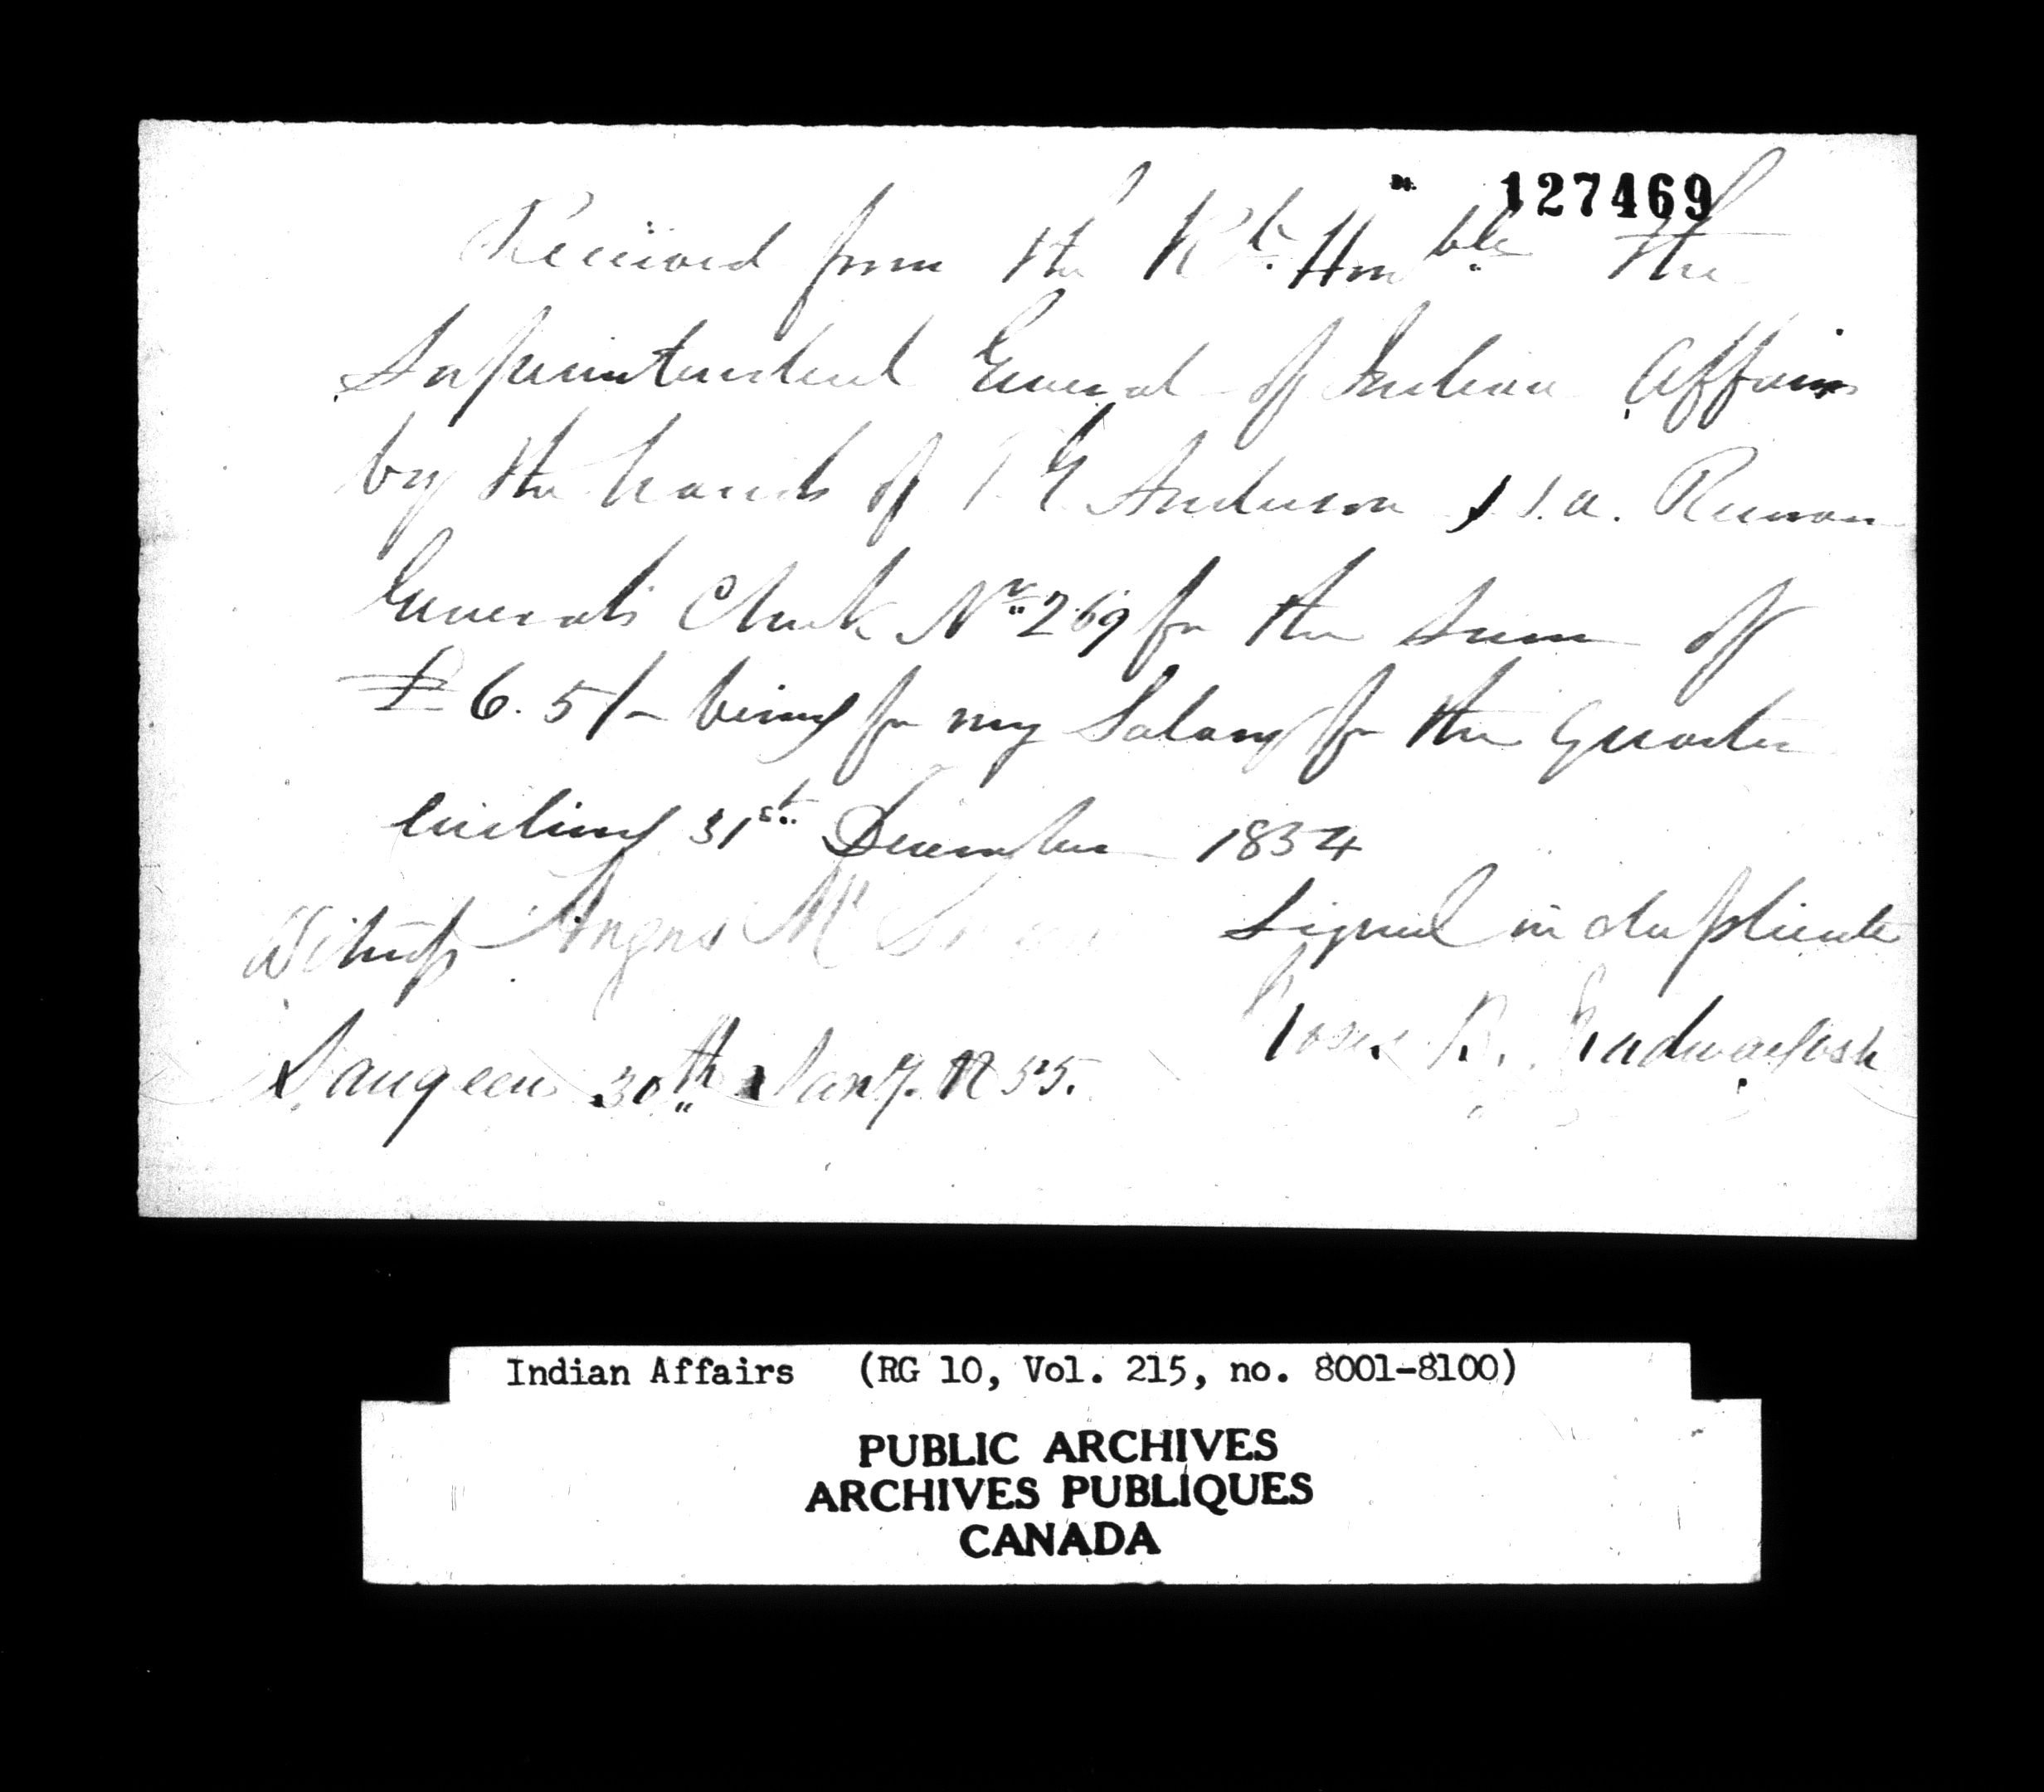 127469
Received from the Rt. Honble. The
Superintendent General of Indian Affairs
by the hands of T G Anderson S.I.A. Receiver
Generals Check No. 269 for the sum of
£6.5/- being for my Salary for the Quarter
ending 31st. December 1854
Witness Angus Mc Signed in duplicate
B.
Saugeen 30th Jany. 1855.
Indian Affairs (RG 10, Vol. 215, no. 8001-8100)
PUBLIC ARCHIVES
ARCHIVES PUBLIQUES
CANADA